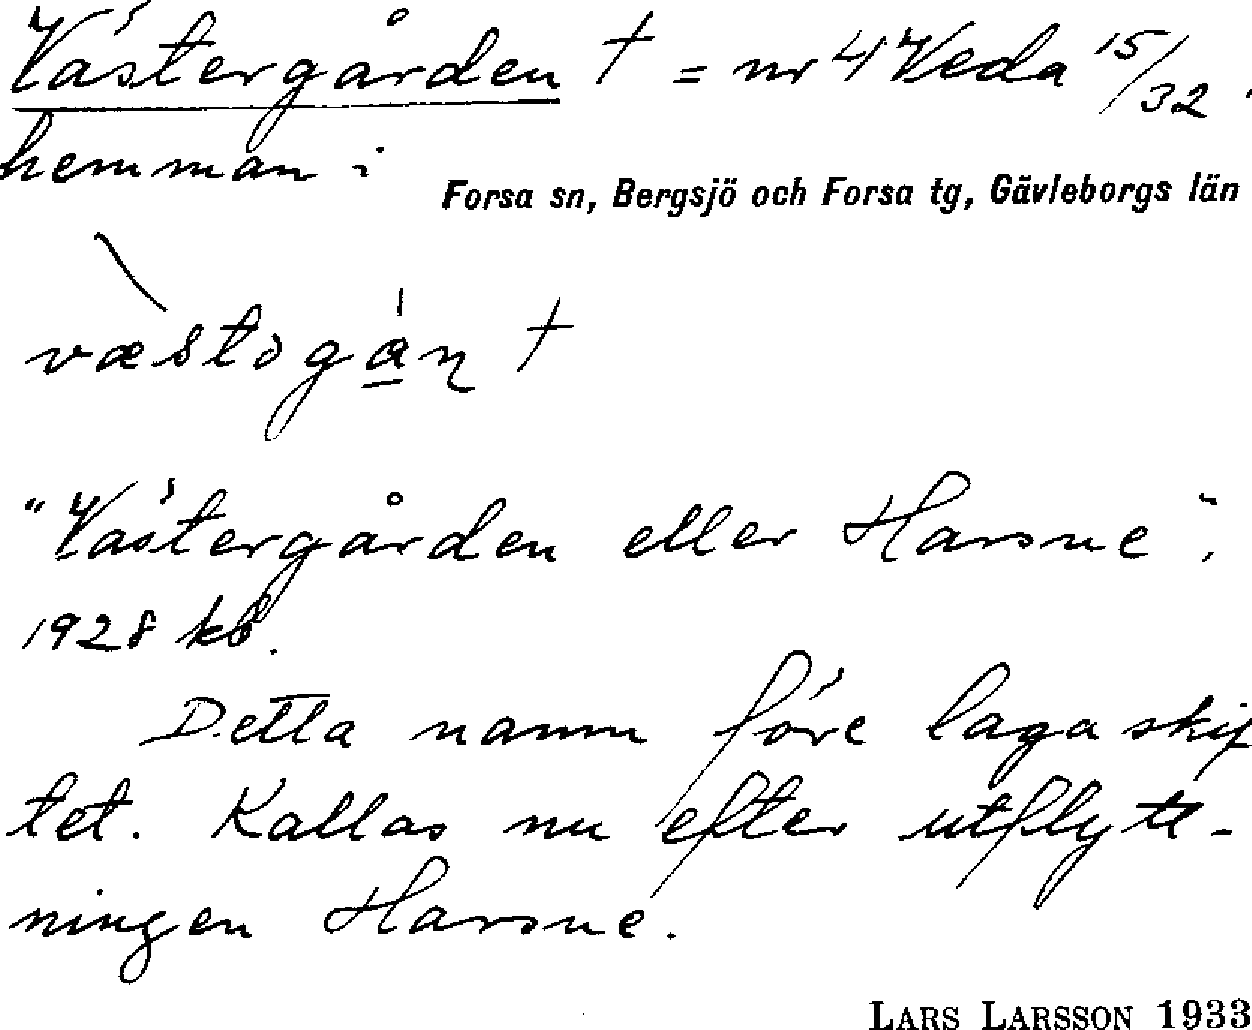 Västergården † = nr 4 Veda 15/32
hemman i
Forsa sn, Bergsjö och Forsa tg, Gävleborgs län
"Västergården eller Harsne",
1928 kb.
Detta namn före laga skif
tet. Kallas nu efter utflytt-
ningen Harsne.
LARS LARSSON 1933